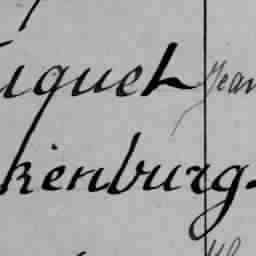 uquet Jean
kenburg.